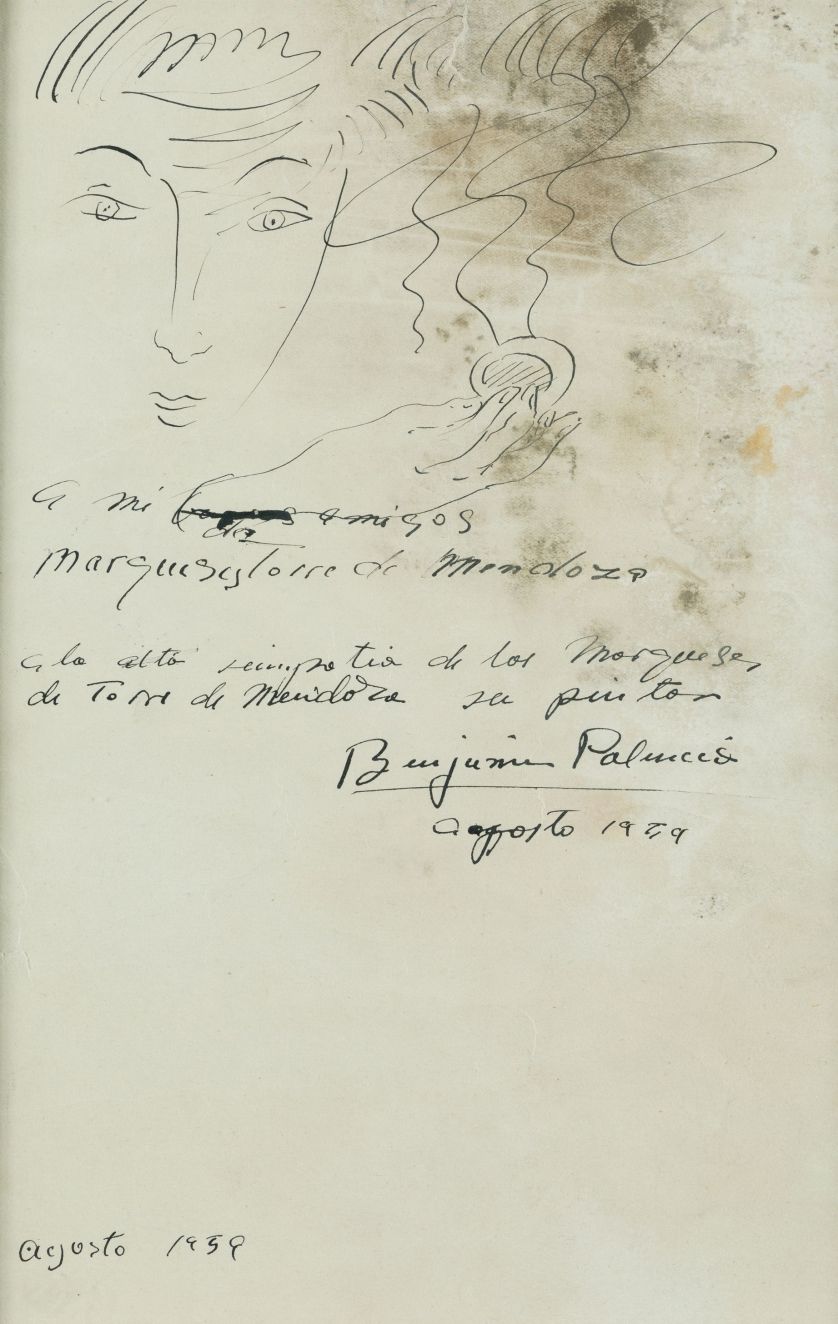 a mi amigos
de
Marqueses Torre de Mendoza
a la alta simpatia de los Marqueses
de Torre de Mendoza su pintor
Benjamin Palencia
agosto 1959
agosto 1959